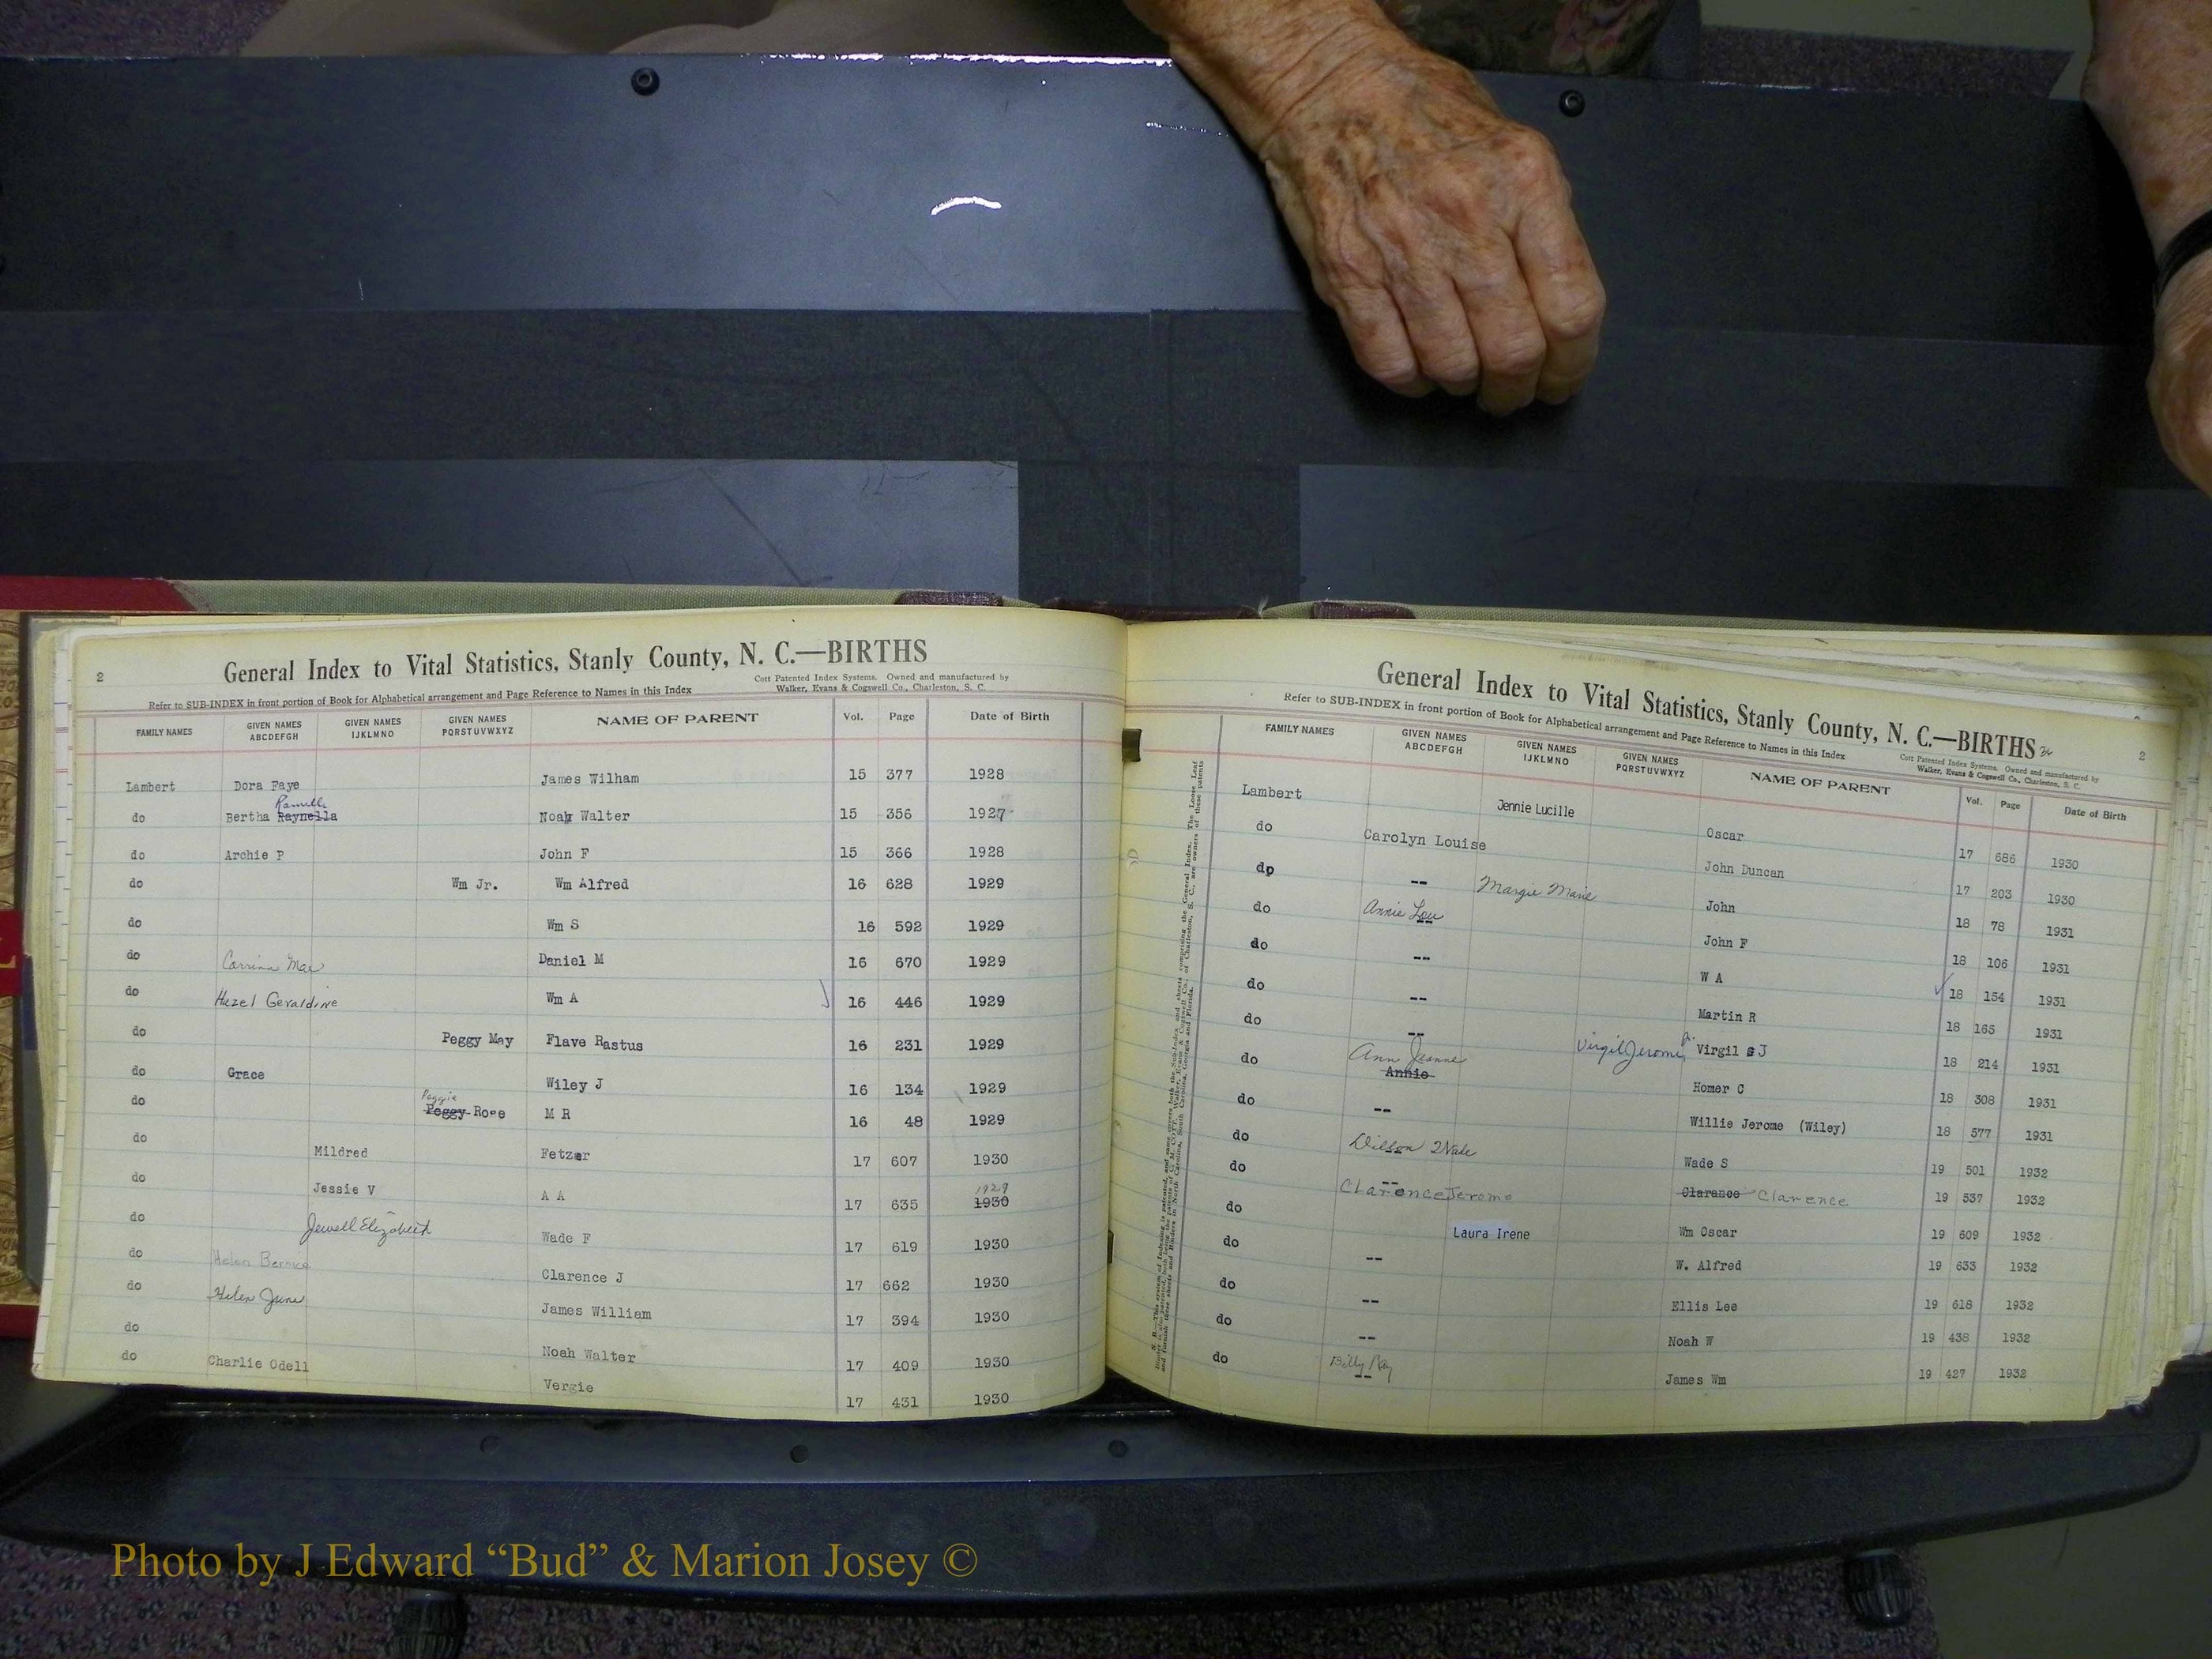 2
General Index to Vital Statistics, Stanly County, N. C.—BIRTHS
Refer to SUB-INDEX in front portion of Book for Alphabetical arrangement and Page Reference to Names in this Index
Cott Patented Index Systems. Owned and manufactured by
Walker, Evans & Cogswell Co., Charleston, S. C.
FAMILY NAMES GIVEN NAMES ABCDEFGH GIVEN NAMES IJKLMNO GIVEN NAMES PQRSTUVWXYZ NAME OF PARENT Vol. Page Date of Birth
Lambert Dora Faye James Wilham 15 377 1928
do Bertha Raynella Noah Walter 15 356 1927
do Archie P John F 15 366 1928
do Wm Jr. Wm Alfred 16 628 1929
do Wm S 16 592 1929
do Corrina Mae Daniel M 16 670 1929
do Hazel Geraldine Wm A 16 446 1929
do Peggy May Flave Rastus 16 231 1929
do Grace Wiley J 16 134 1929
Peggie
do Peggy Rose M R 16 48 1929
do Mildred Fetzer 17 607 1930
1929
do Jessie V A A 17 635 1930
do Jewell Elizabeth Wade F 17 619 1930
do Helen Bernice Clarence J 17 662 1930
do Helen June James William 17 394 1930
do Noah Walter 17 409 1930
do Charlie Odell Vergie 17 431 1930
General Index to Vital Statistics, Stanly County, N. C.—BIRTHS
2
Refer to SUB-INDEX in front portion of Book for Alphabetical arrangement and Page Reference to Names in this Index
Cott Patented Index Systems. Owned and manufactured by
Walker, Evans & Cogswell Co., Charleston, S. C.
FAMILY NAMES GIVEN NAMES ABCDEFGH GIVEN NAMES IJKLMNO GIVEN NAMES PQRSTUVWXYZ NAME OF PARENT Vol. Page Date of Birth
Lambert Jennie Lucille Oscar 17 686 1930
do Carolyn Louise John Duncan 17 203 1930
do -- Margie Marie John 18 78 1931
do Annie Lou -- John F 18 106 1931
do -- W A 18 154 1931
do -- Martin R 18 165 1931
do -- Virgil Jerome Jr. Virgil J 18 214 1931
do Ann Jeanne Annie Homer C 18 308 1931
do -- Willie Jerome (Wiley) 18 577 1931
do Wilson Wade S 19 501 1932
do -- Clarence Jerome Clarance Clarence 19 537 1932
do Laura Irene Wm Oscar 19 609 1932
do -- W. Alfred 19 633 1932
do -- Ellis Lee 19 618 1932
do -- Noah W 19 438 1932
do Billy Ray -- James Wm 19 427 1932
Photo by J Edward “Bud” & Marion Josey ©